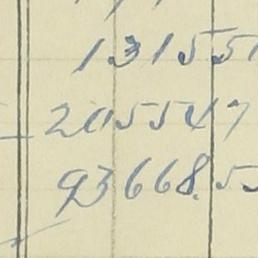 131551
205547
93668.55